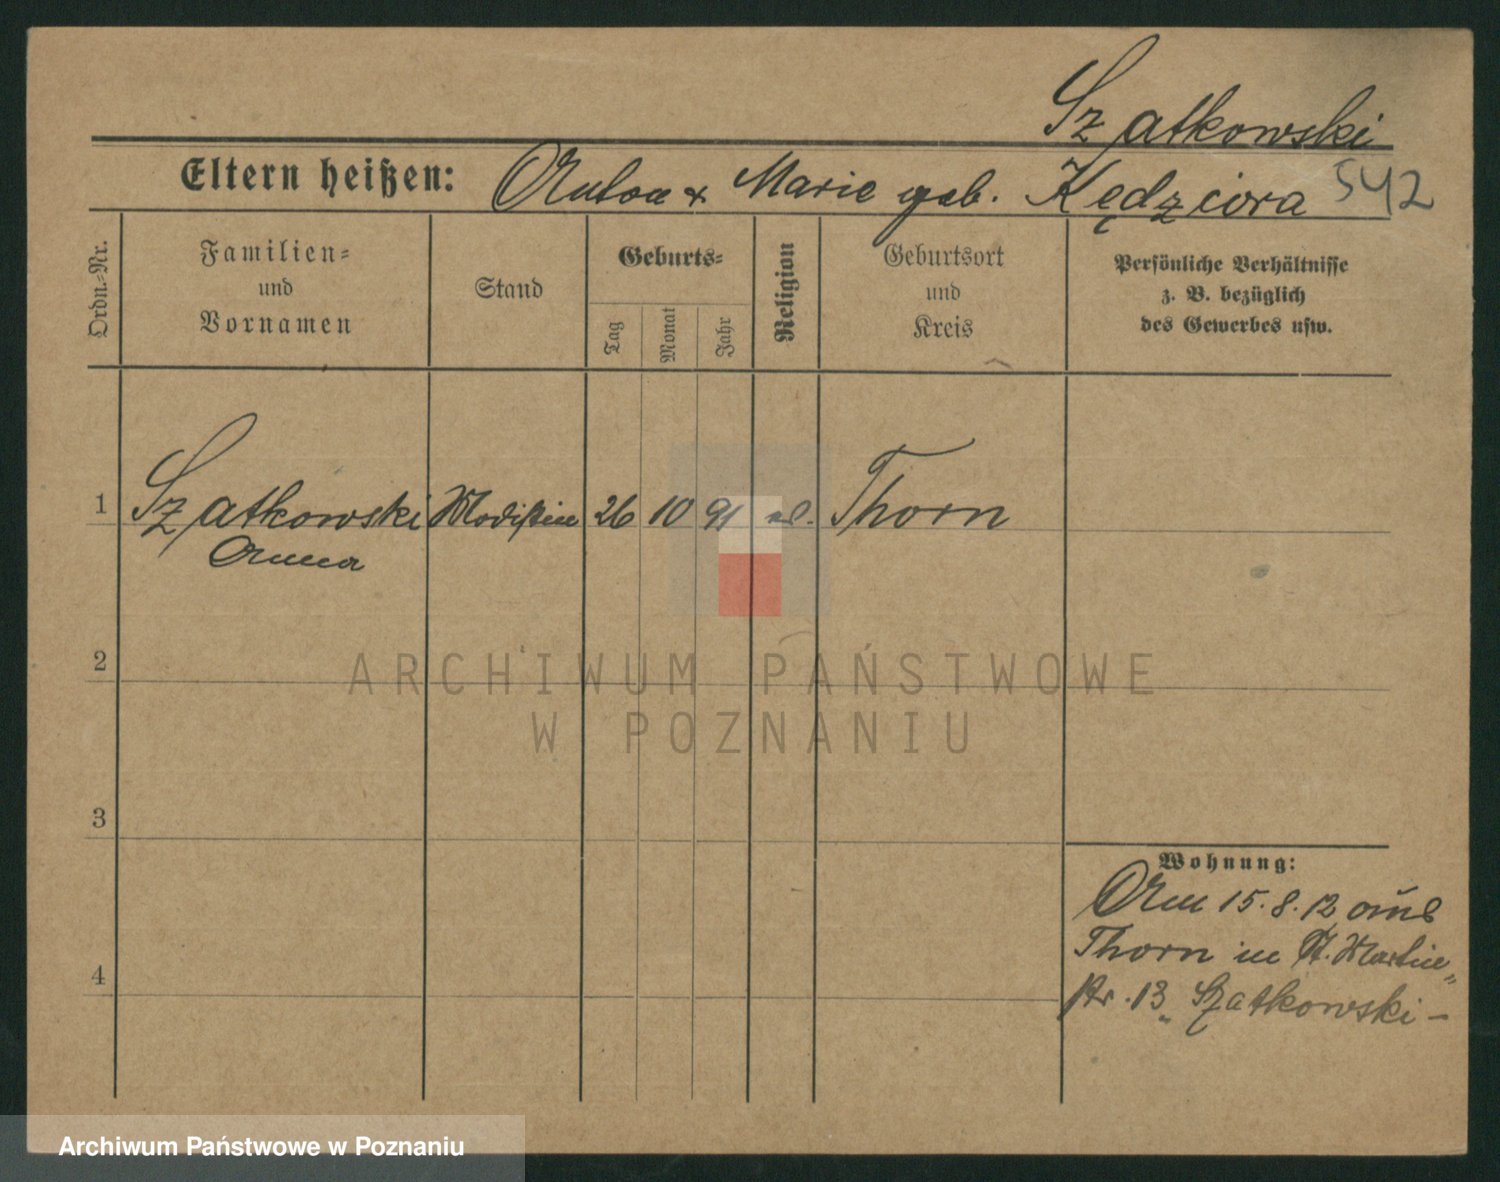 Szatkowski
Eltern heißen: Anton & Marie geb. Kędziora 542
Ordn.-Nr.
Familien-
und
Vornamen
Stand
Geburts-
Tag
Monat
Jahr
Religion
Geburtsort
und
Kreis
Persönliche Verhältnisse
z. B. bezüglich
des Gewerbes usw.
1 Szatkowski Modistin 26 10 91 Thorn
Anna
2
3
4
Wohnung:
Am 15.8.12 aus
Thorn in St. Martin-
str. 13 Szatkowski –
ARCHIWUM PAŃSTWOWE
W POZNANIU
Archiwum Państwowe w Poznaniu